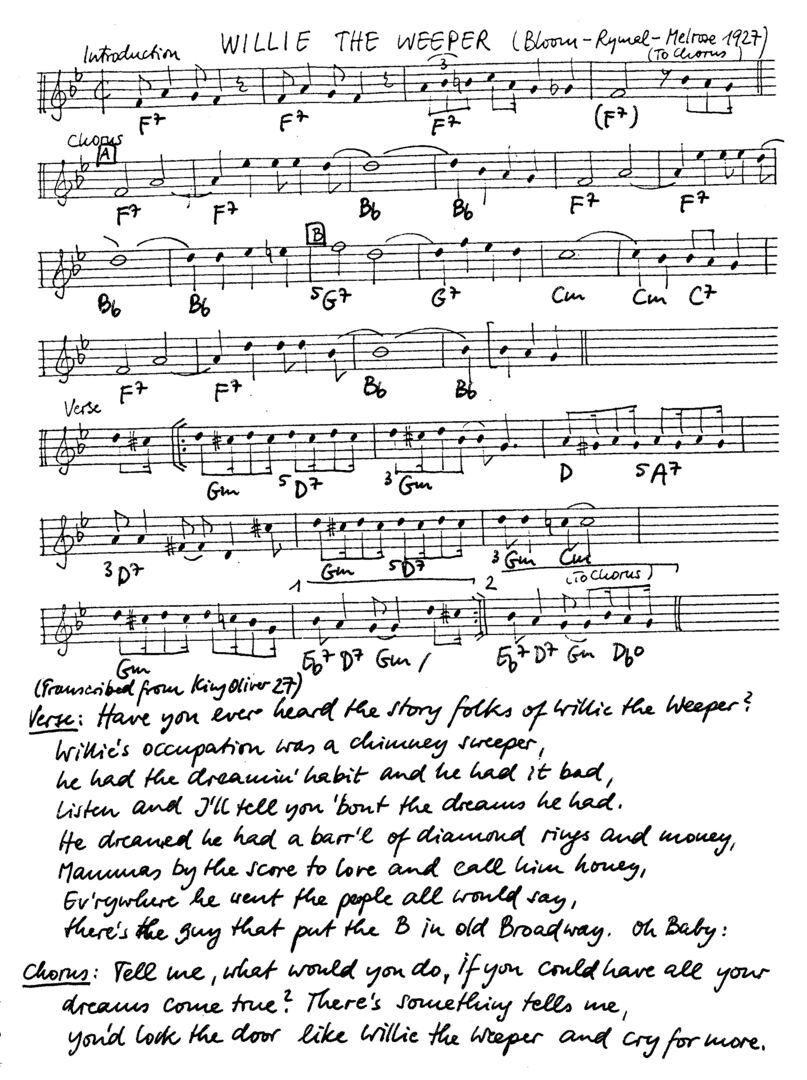 WILLIE THE WEEPER (Bloom-Rymal-Melrose 1927)
Introduction
(To Chorus)
3
F7 F7 F7 (F7)
Chorus
A
F7 F7 Bb Bb F7 F7
B
Bb Bb 5G7 G7 Cm Cm C7
F7 F7 Bb Bb
Verse
Gm 5D7 3Gm D 5A7
3D7 Gm 5D7 3Gm Cm
1 2 (To Chorus)
Gm Eb7 D7 Gm / Eb7 D7 Gm Dbo
(Transcribed from King Oliver 27)
Verse: Have you ever heard the story folks of Willie the Weeper?
Willie's occupation was a chimney sweeper,
he had the dreamin' habit and he had it bad,
Listen and I'll tell you 'bout the dreams he had.
He dreamed he had a barr'l of diamond rings and money,
Mammas by the score to love and call him honey,
Ev'rywhere he went the people all would say,
there's the guy that put the B in old Broadway. Oh Baby:
Chorus: Tell me, what would you do, if you could have all your
dreams come true? There's something tells me,
you'd lock the door like Willie the Weeper and cry for more.